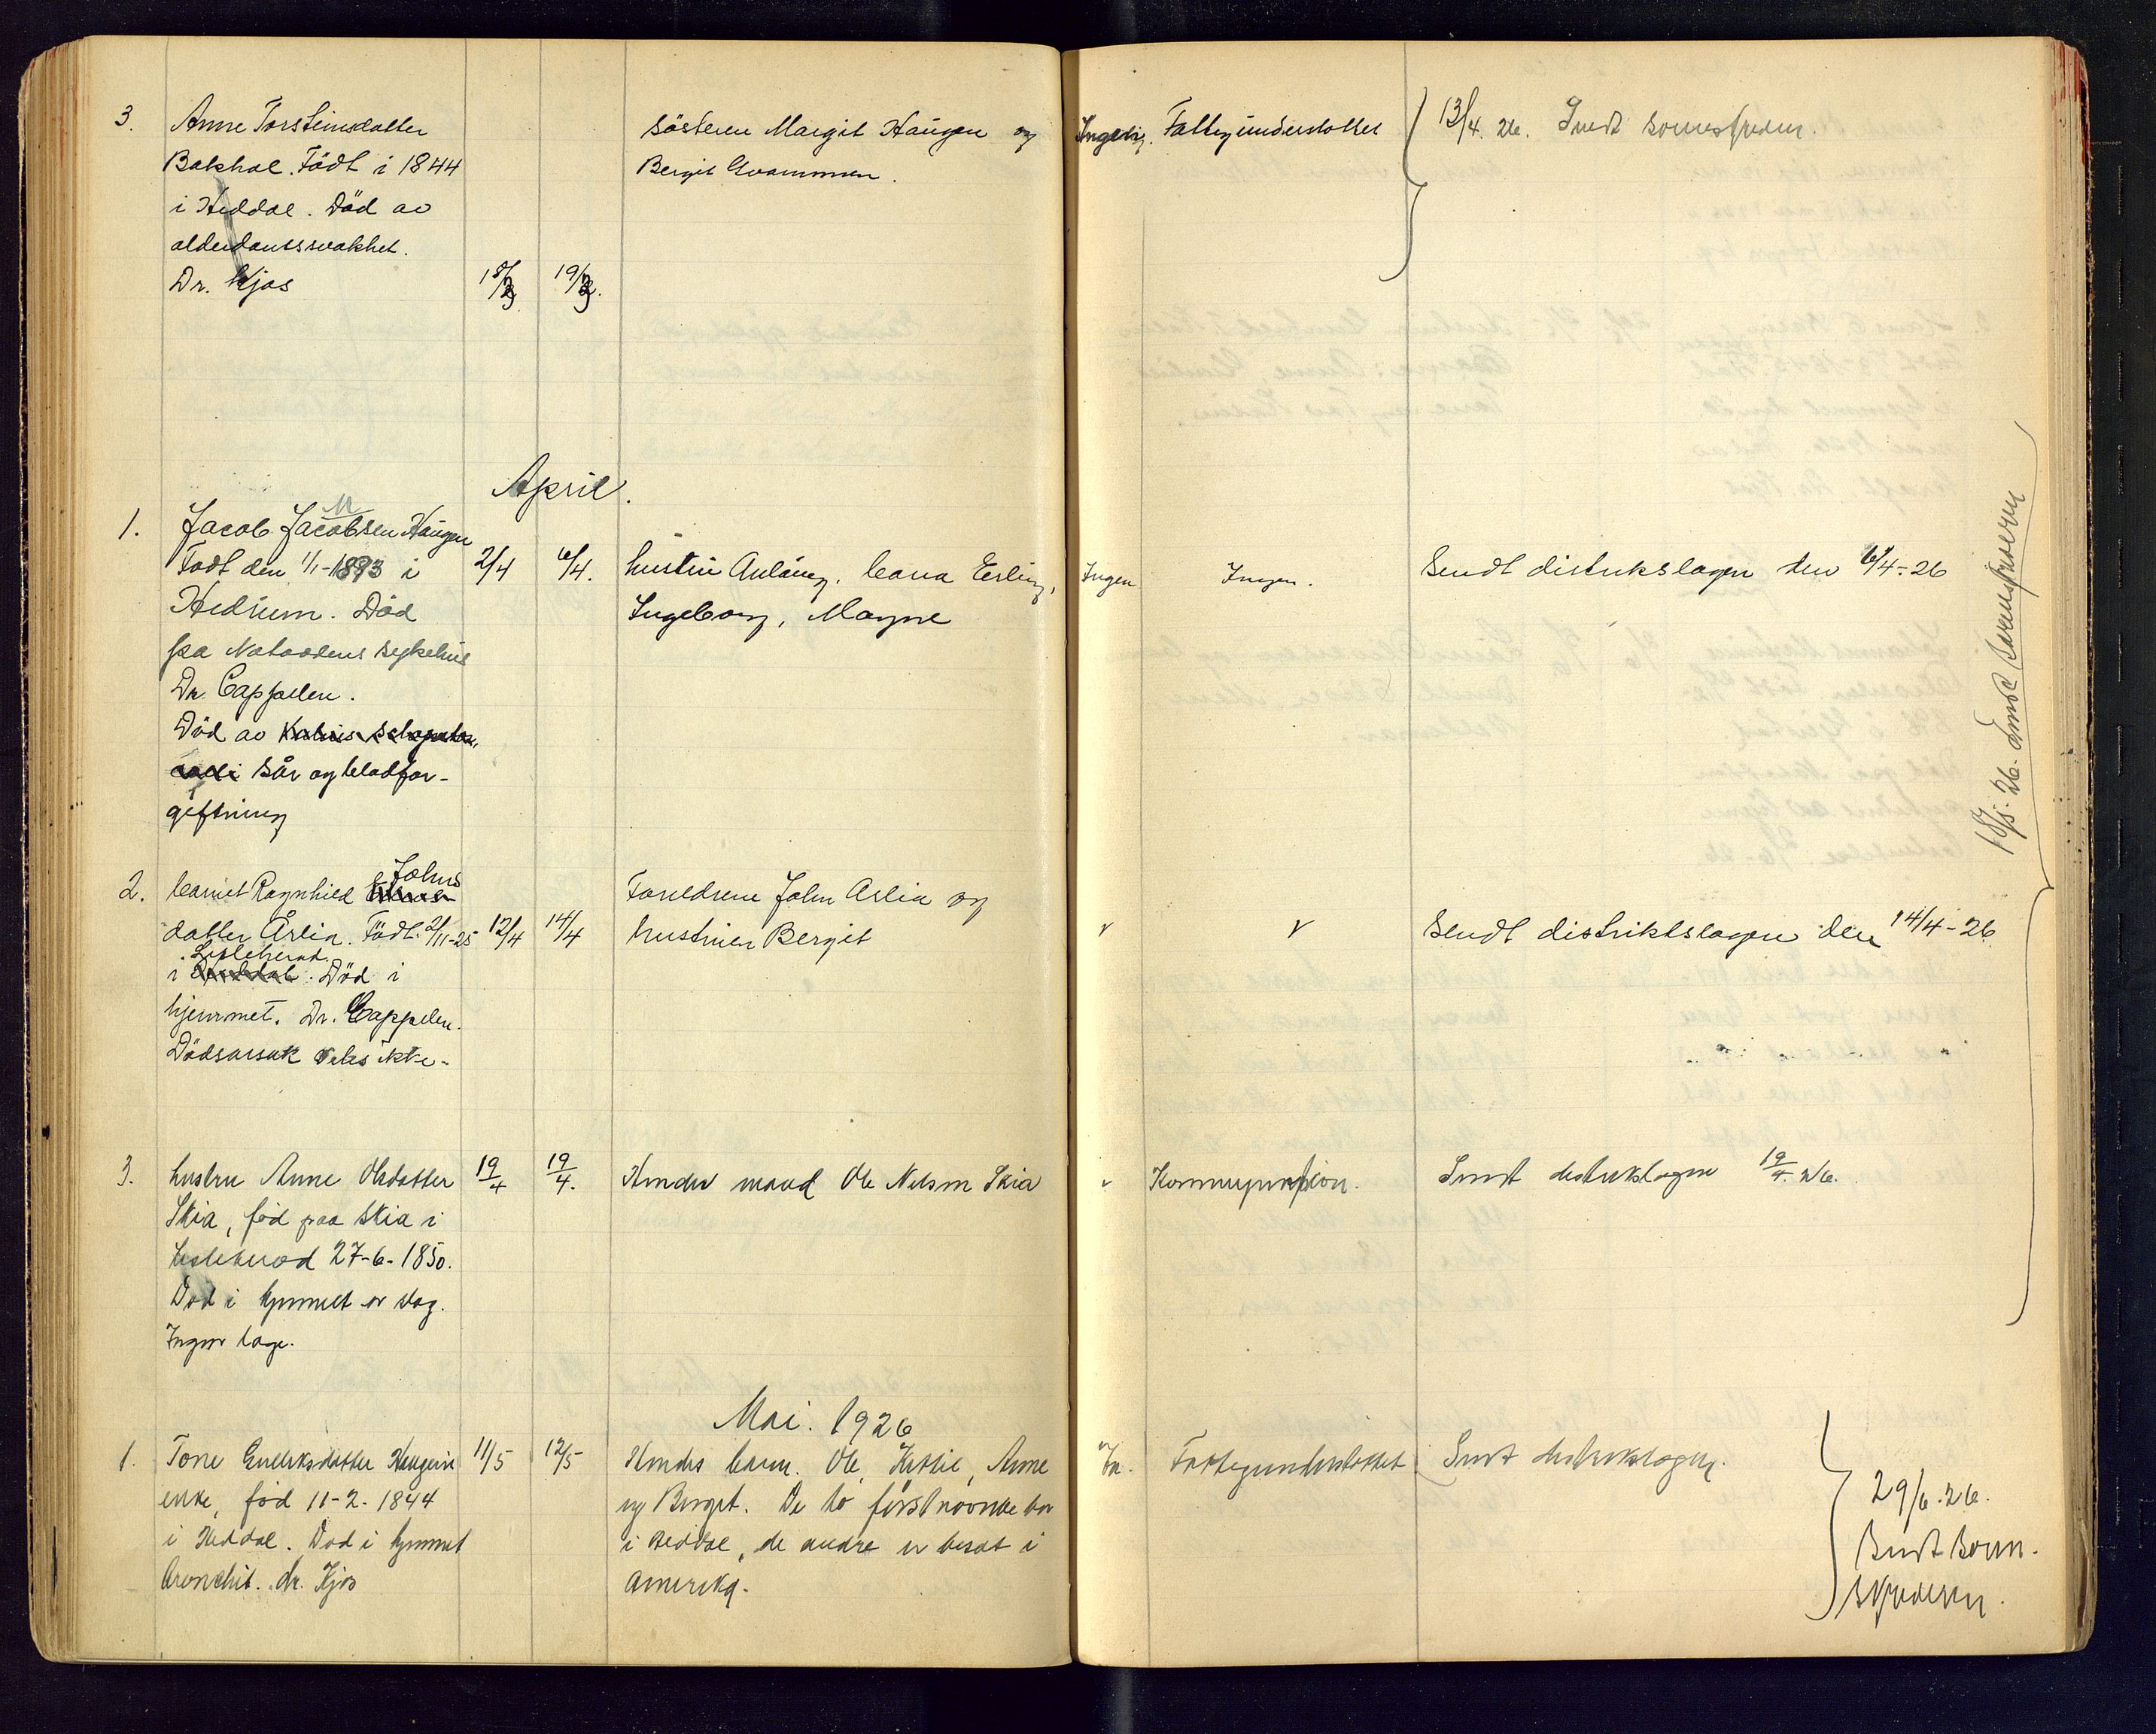 3. Anne Torsteinsdatter
Bakhal. Født i 1844
i Heddal. Død av
alderdomssvakhet.
Dr. Kjos 18/3 19/3.
Søsteren Margit Haugen og
Bergit Gvammen.
Ingen. Fattigunderstøttet
13/4. 26. Sendt sorenskriveren.
April.
1. Jacob Jacobsen Haugen
Født den 1/1-1893 i 2/4 6/4.
Hedrum. Død
på Notoddens sykehus
Dr. Cappelen.
Død av
sår og blodfor-
giftning
hustru Aulaug, barn Erling,
Ingeborg, Magne
Ingen Ingen. Sendt distrikslagen den 6/4-26
2. barnet Ragnhild Johns
datter Århin. Født 2/11-25 12/4 14/4
Lisleherad
i Heddal. Død i
hjemmet. Dr. Cappelen.
Dødsårsak vites ikke.
Foreldrene John Århin og
hustruen Bergit
v v Sendt distriktslagen den 14/4-26
3. hustru Anne Olsdatter 19/4 19/4.
Skia, fød paa Skia i
Lisleherad 27-6-1850.
Død i hjemmet av slag.
Ingen læge.
Hendes mand Ole Nilsen Skia
v Kommunepension. Sendt distrikslagen 19/4. 26.
18/5. 26. sendt sorenskriveren
Mai. 1926
1. Tone Endriksdatter Haugen 11/5 12/5
enke, fød 11-2-1844
i Heddal. Død i hjemmet
bronchit. dr. Kjos
Hendes barn. Ole, Kittil, Anne
og Bergit. De to førstnævnte bor
i Heddal, de andre er bosat i
Amerika.
In. Fattigunderstøttet Sendt distrikslagen.
29/6. 26.
Sendt Soren-
skriveren.